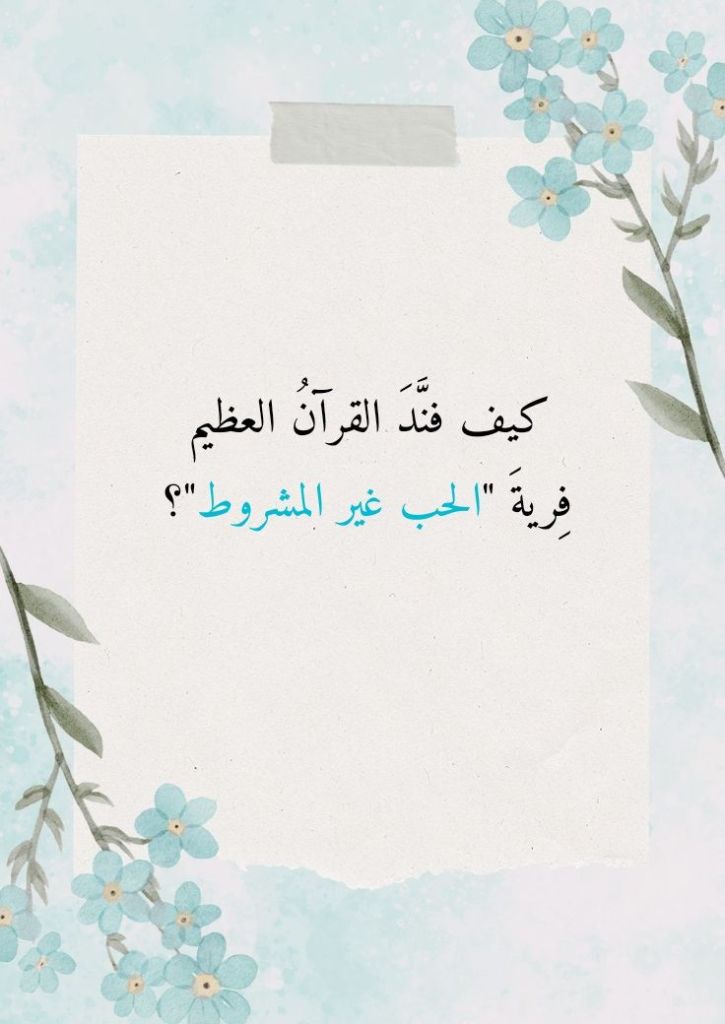 كيف فنَّدَ القرآنُ العظيم
فِريةَ "الحب غير المشروط"؟